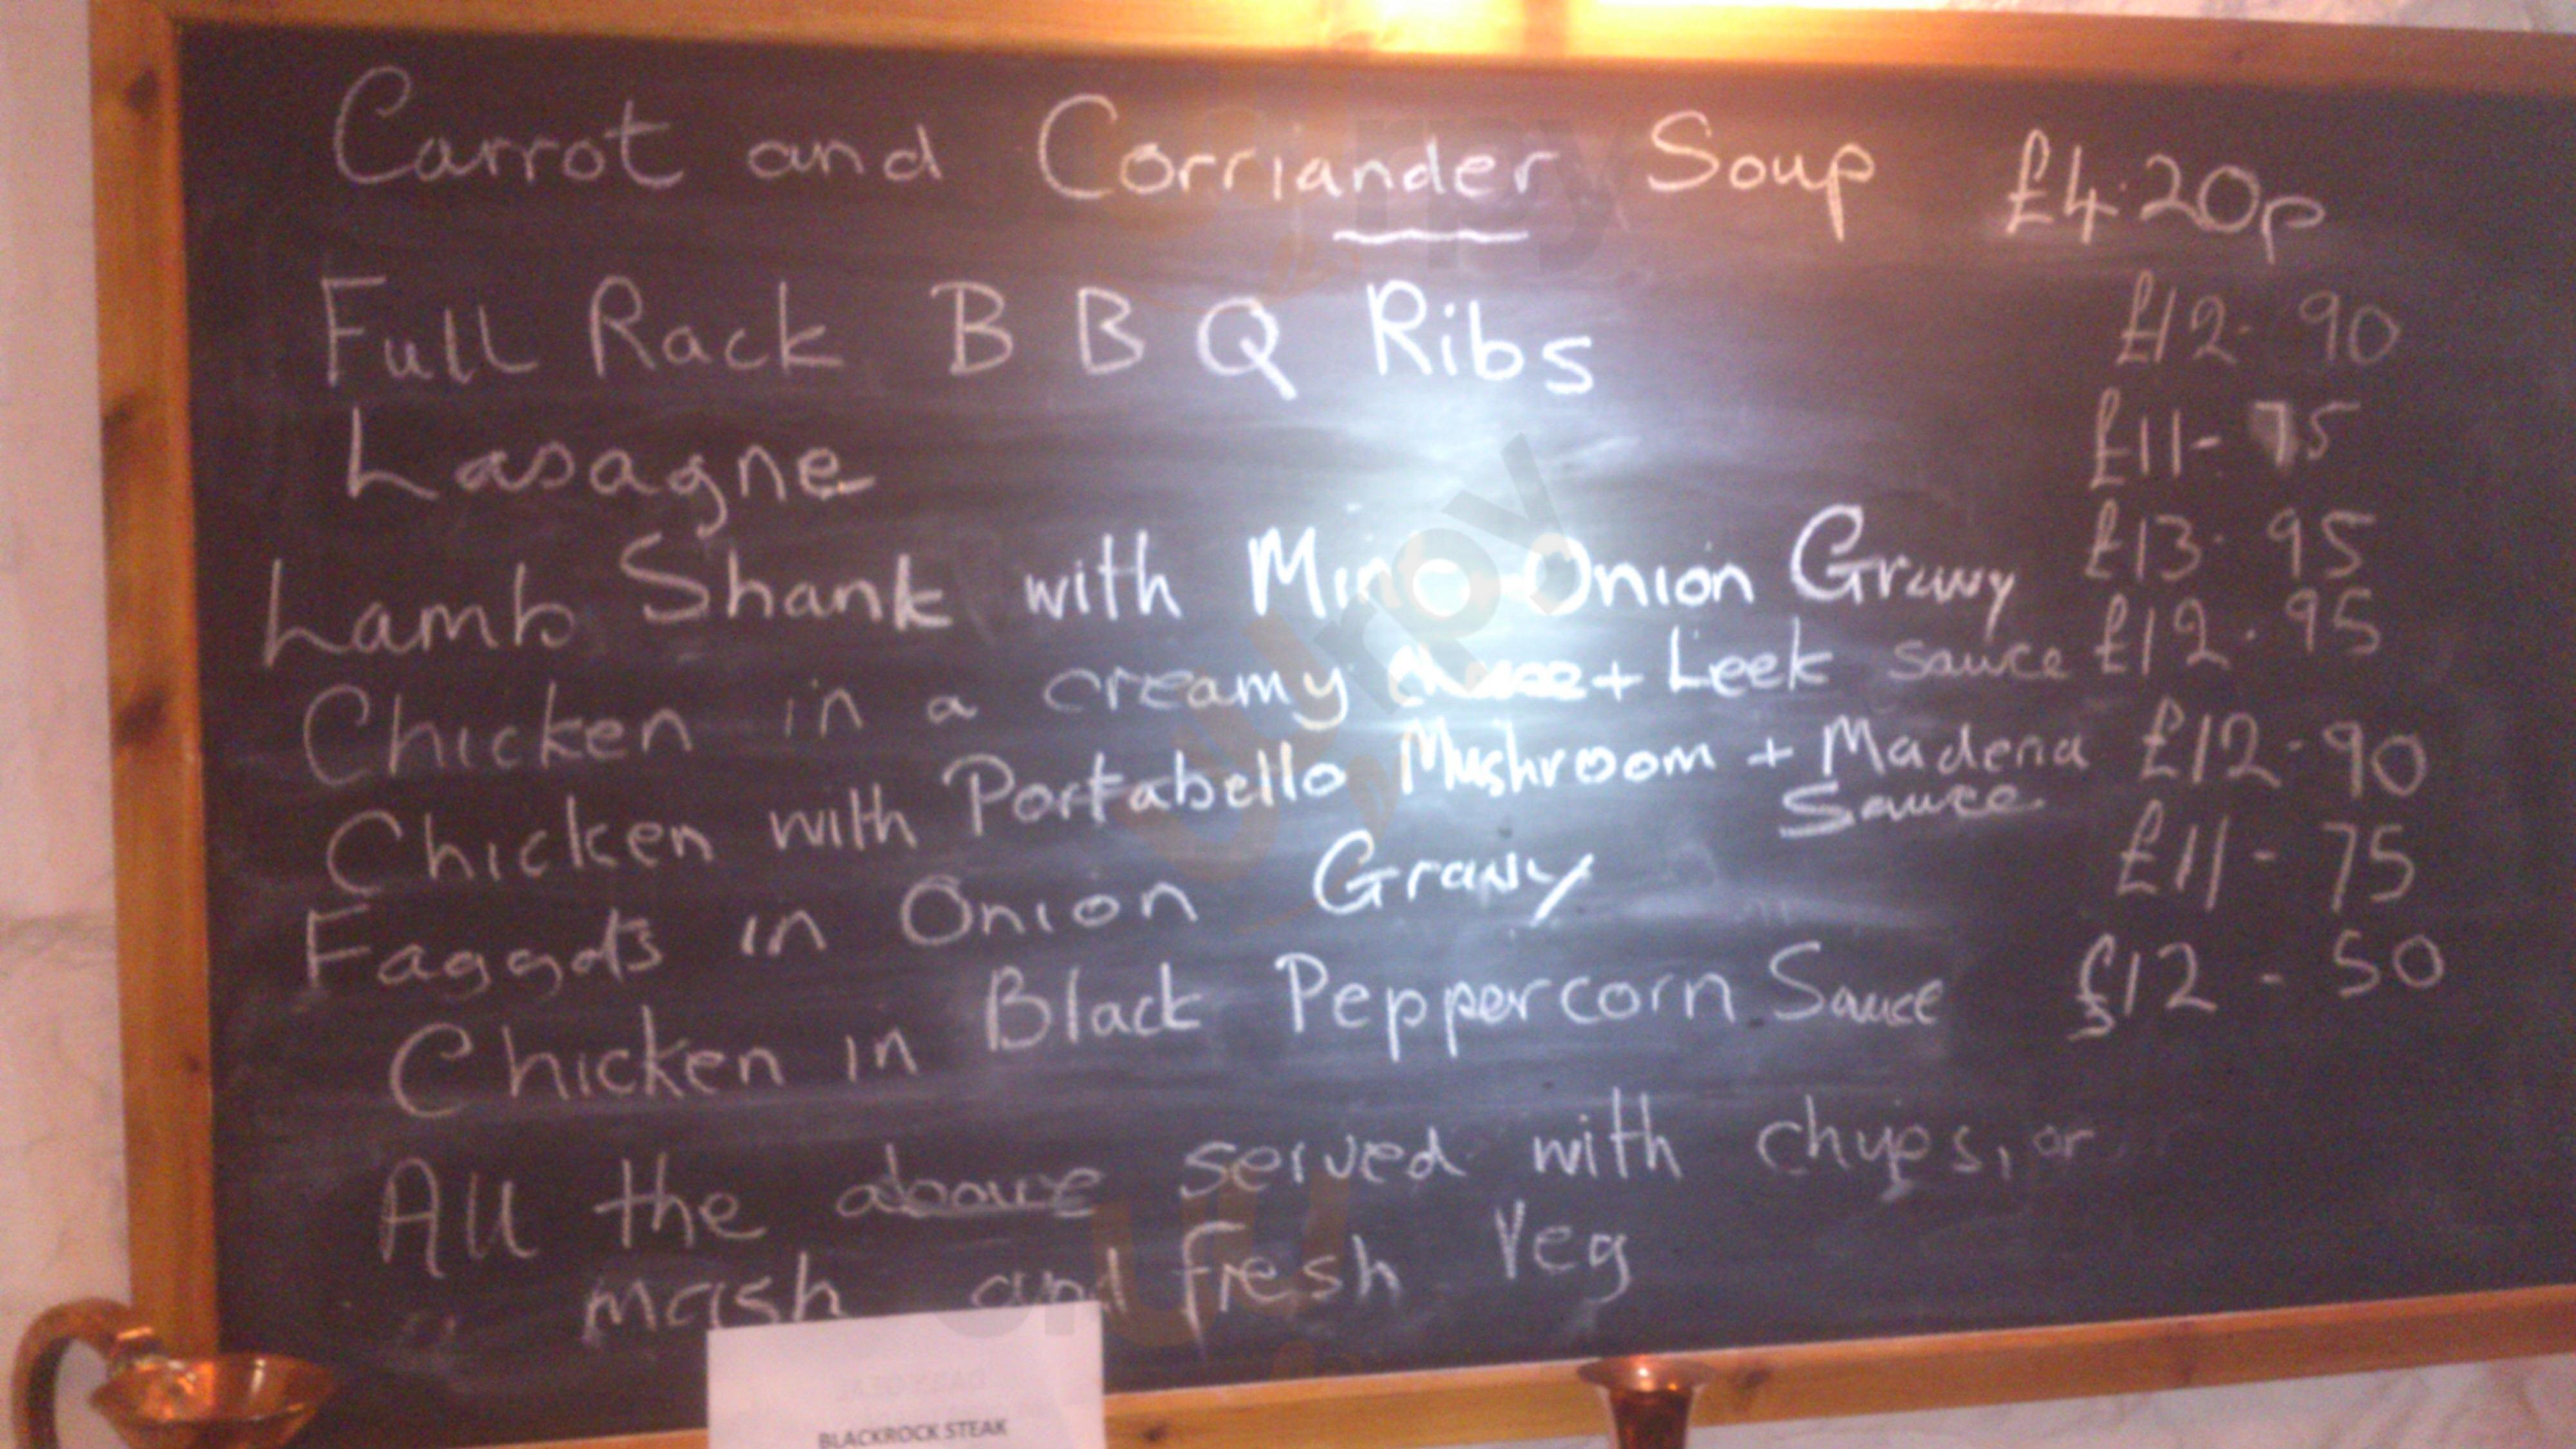 Carrot and Corriander Soup £4.20p
Full Rack B B Q Ribs £12-90
Lasagne £11-75
Lamb Shank with Onion Gravy £13.95
Chicken in a creamy + Leek sauce £12.95
Chicken with Portabello Mushroom + Maderia £12-90
Sauce
Faggots in Onion Gravy £11-75
Chicken in Black Peppercorn Sauce £12-50
All the above served with chips, or
mash and fresh Veg
BLACKROCK STEAK